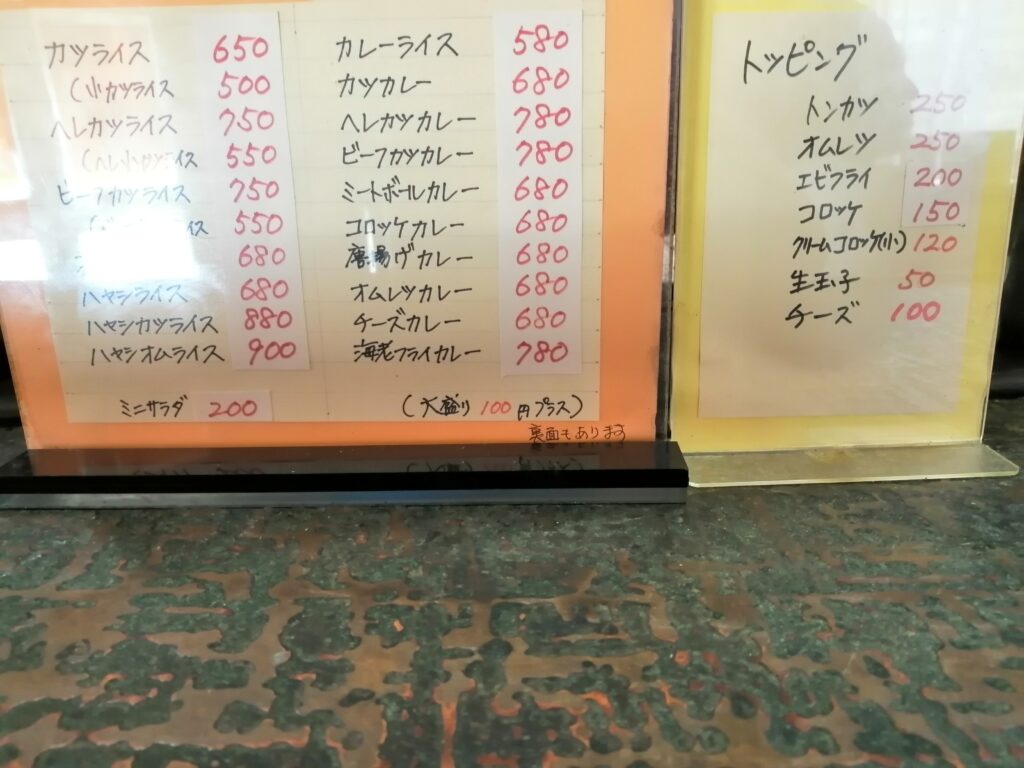 カツライス 650
(小カツライス 500
ヘレカツライス 750
(ヘレ小カツライス 550
ビーフカツライス 750
イス 550
680
ハヤシライス 680
ハヤシカツライス 880
ハヤシオムライス 900
ミニサラダ 200
カレーライス 580
カツカレー 680
ヘレカツカレー 780
ビーフカツカレー 780
ミートボールカレー 680
コロッケカレー 680
唐揚ヴカレー 680
オムレツカレー 680
チーズカレー 680
海老フライカレー 780
(大盛り100円プラス)
裏面もあります
トッピング
トンカツ 250
オムレツ 250
エビフライ 200
コロッケ 150
クリームコロッケ(小) 120
生玉子 50
チーズ 100